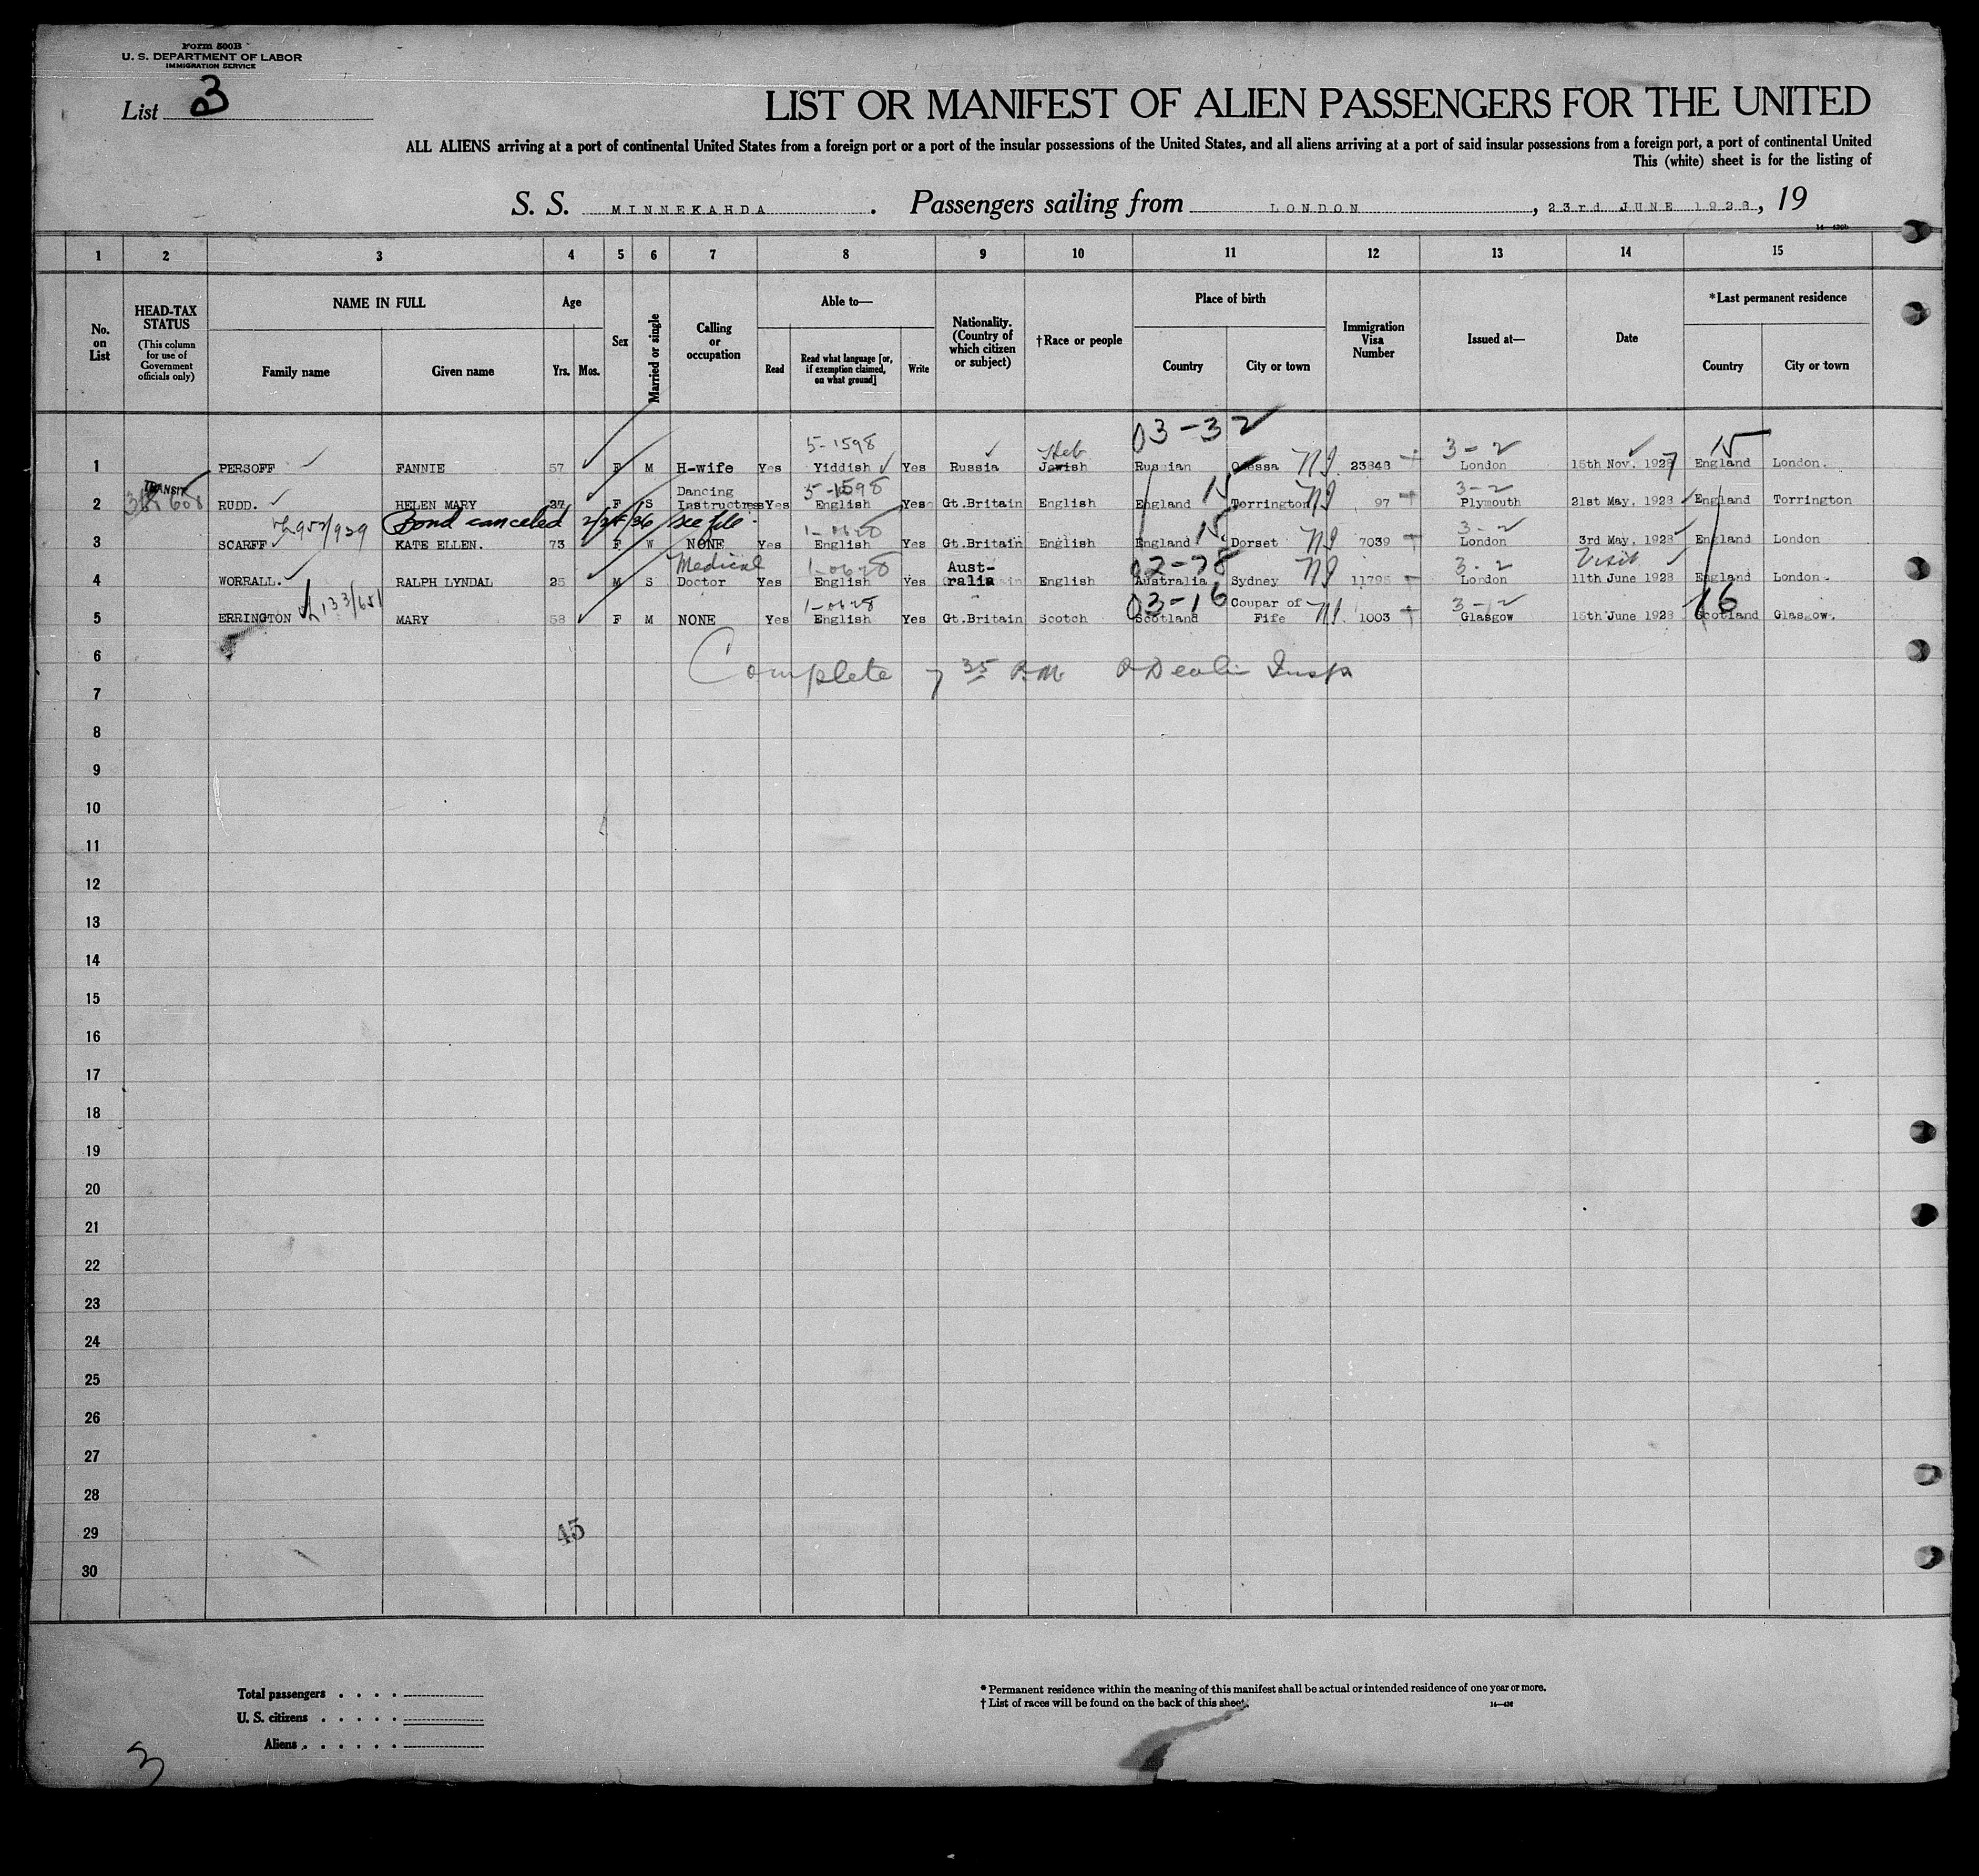 Form 500B
U. S. DEPARTMENT OF LABOR
IMMIGRATION SERVICE
List 3
LIST OR MANIFEST OF ALIEN PASSENGERS FOR THE UNITED
ALL ALIENS arriving at a port of continental United States from a foreign port or a port of the insular possessions of the United States, and all aliens arriving at a port of said insular possessions from a foreign port, a port of continental United
This (white) sheet is for the listing of
S. S. MINNEKAHDA. Passengers sailing from LONDON, 23rd JUNE 1928, 19
1 2 3 4 5 6 7 8 9 10 11 12 13 14 15
No. on List
HEAD-TAX STATUS (This column for use of Government officials only)
NAME IN FULL
Family name
Given name
Age
Yrs. Mos.
Sex
Married or single
Calling or occupation
Able to—
Read
Read what language [or, if exemption claimed, on what ground]
Write
Nationality. (Country of which citizen or subject)
†Race or people
Place of birth
Country
City or town
Immigration Visa Number
Issued at—
Date
*Last permanent residence
Country
City or town
03-32
5-1598 Heb 3-2 15
1 PERSOFF FANNIE 57 F M H-wife Yes Yiddish Yes Russia Jewish Russian Odessa NI 23848 London 15th Nov. 1927 England London.
TRANSIT Dancing 5-1598 15 3-2
2 608 RUDD. HELEN MARY 27 F S Instructress Yes English Yes Gt.Britain English England Torrington NI 97 Plymouth 21st May, 1928 England Torrington
Bond canceled 36 see file
1-0628 15 3-2
3 SCARFF KATE ELLEN. 73 F W NONE Yes English Yes Gt.Britain English England Dorset NI 7039 London 3rd May, 1928 England London
Medical 1-0628 Aust- 02-78 3-2 Visit
4 WORRALL. RALPH LYNDAL 25 M S Doctor Yes English Yes ralia English Australia Sydney NI 11795 London 11th June 1928 England London.
133/651 1-0628 03-16 Coupar of 3-2 16
5 ERRINGTON MARY 58 F M NONE Yes English Yes Gt.Britain Scotch Scotland Fife NI 1003 Glasgow 15th June 1928 Scotland Glasgow.
6
Complete 7 35 P.M. Insp
7
8
9
10
11
12
13
14
15
16
17
18
19
20
21
22
23
24
25
26
27
28
29
45
30
Total passengers
U. S. citizens
Aliens
* Permanent residence within the meaning of this manifest shall be actual or intended residence of one year or more.
† List of races will be found on the back of this sheet.
3